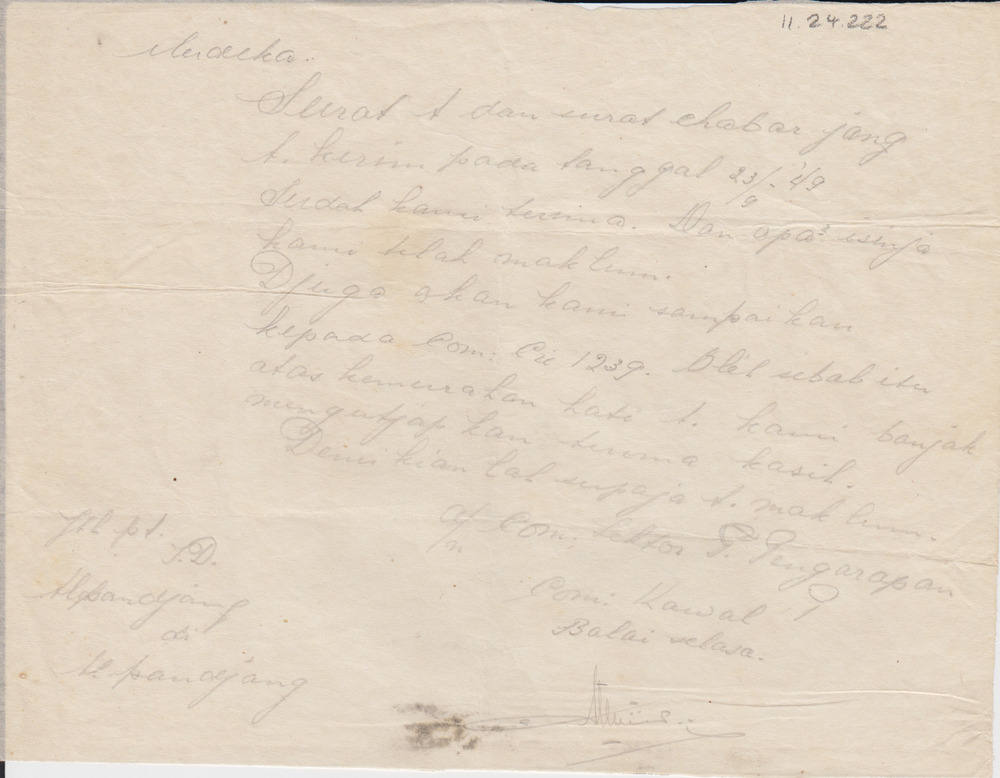 11.24.222
Merdeka.
Surat t dan surat chabar jang
t. kirim pada tanggal 23/9-'49
Sudah kami terima. Dan apa² isinja
kami telah maklum.
Djuga akan kami sampaikan
kepada Com: Cie 1239. Oleh sebab itu
atas kemurahan hati t. kami banjak
mengutjapkan terima kasih.
Demikianlah supaja t. maklum.
a/n Com: Sektor P. Pengarapan
Com: Kawal
Balai selasa.
Jth pt.
di